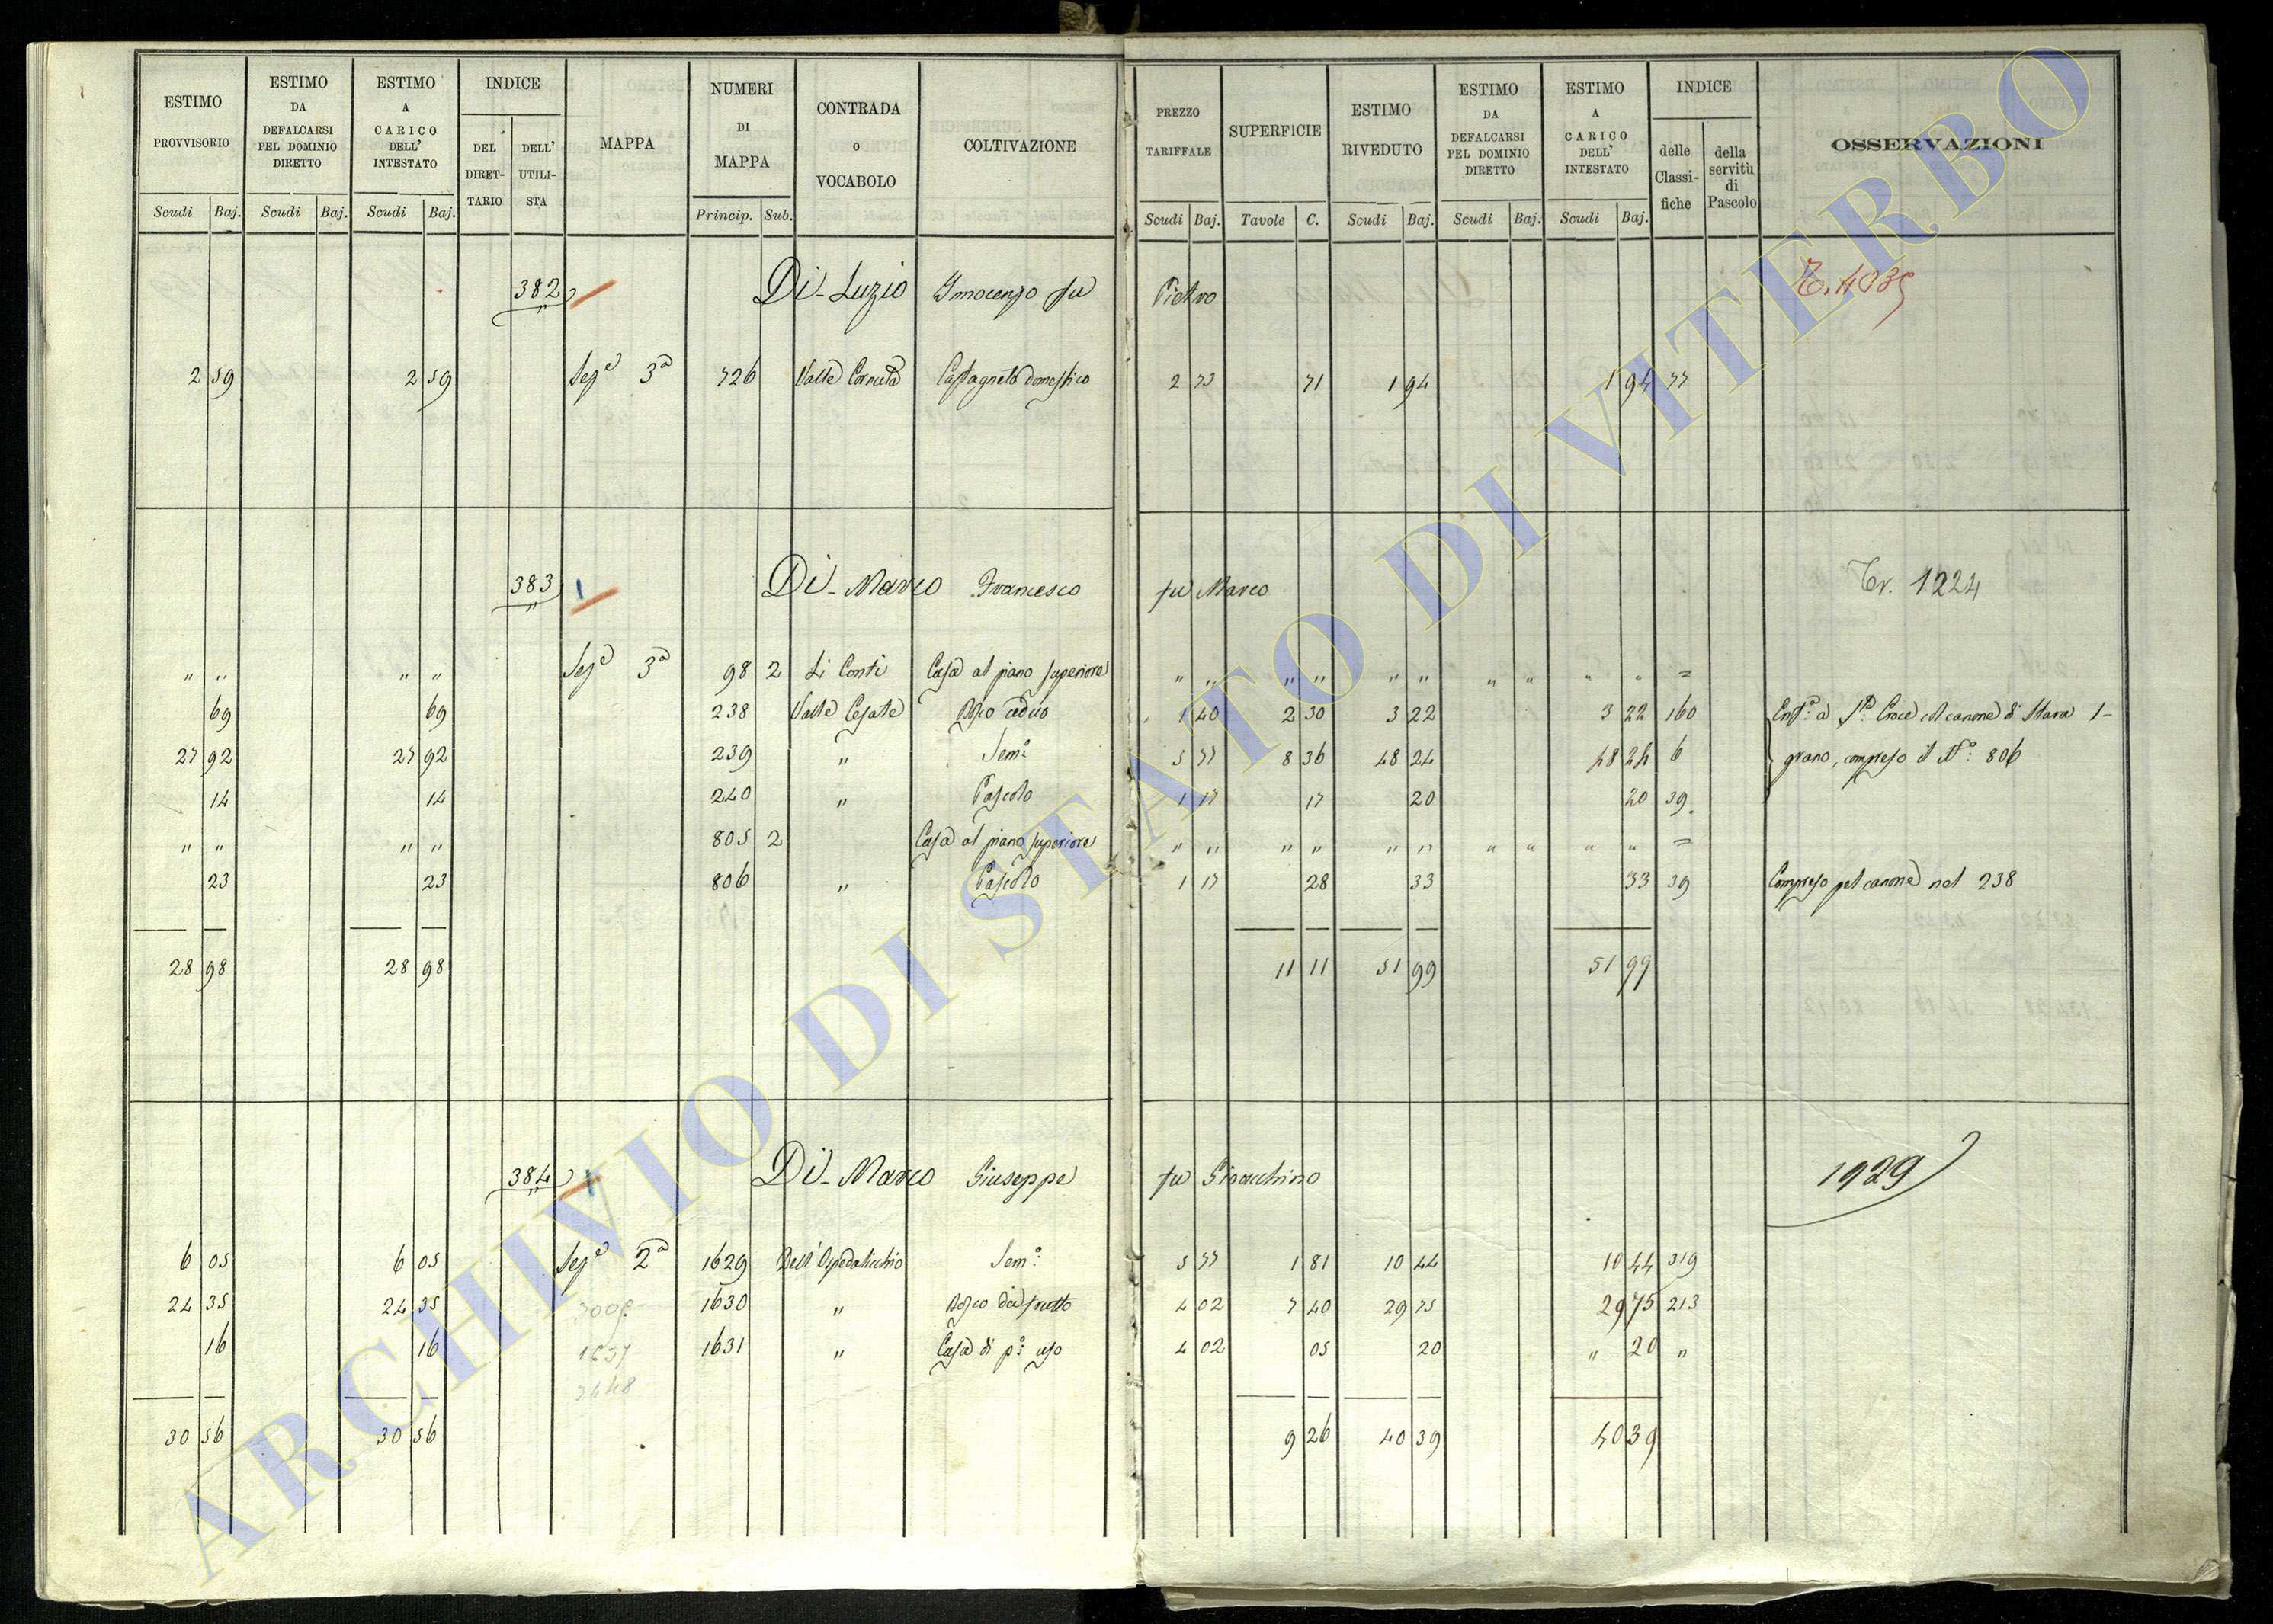 ESTIMO PROVVISORIO
ESTIMO DA DEFALCARSI PEL DOMINIO DIRETTO
ESTIMO A CARICO DELL' INTESTATO
INDICE
DEL DIRET-TARIO
DELL' UTILI-STA
MAPPA
NUMERI DI MAPPA
CONTRADA o VOCABOLO
COLTIVAZIONE
PREZZO TARIFFALE
SUPERFICIE
ESTIMO RIVEDUTO
ESTIMO DA DEFALCARSI PEL DOMINIO DIRETTO
ESTIMO A CARICO DELL' INTESTATO
INDICE
delle Classi-fiche
della servitù di Pascolo
OSSERVAZIONI
Scudi Baj. Scudi Baj. Scudi Baj. Princip. Sub. Scudi Baj. Tavole C. Scudi Baj. Scudi Baj. Scudi Baj.
382 Di Luzio Innocenzo fu Pietro
2 59 2 59 Sez.e 3a 726 Valle Cornuta Castagneto domestico 2 73 71 1 94 1 94 77
383 Di Marco Francesco fu Marco Tr. 1224
" " " " Sez.e 3a 98 2 Li Conti Casa al piano superiore " " " " " " " " " " =
69 69 238 Valle Cesate Bosco ceduo 1 40 2 30 3 22 3 22 160 Enf.a a S.a Croce col canone di Stara 1-
27 92 27 92 239 " Sem.o 5 77 8 36 48 24 48 24 6 grano, compreso il N.o 806
14 14 240 " Pascolo 1 17 17 20 20 39
" " " " 805 2 Casa al piano superiore " " " " " " " " " " =
23 23 806 " Pascolo 1 17 28 33 33 39 Compreso pel canone nel 238
28 98 28 98 11 11 51 99 51 99
384 Di Marco Giuseppe fu Gioacchino 1929
6 05 6 05 Sez.e 2a 1629 Dell'Ospedalicchio Sem.o 5 77 1 81 10 44 10 44 319
24 35 24 35 1630 " Bosco da frutto 4 02 7 40 29 75 29 75 213
16 16 1631 " Casa di p.o uso 4 02 05 20 " 20 "
30 56 30 56 9 26 40 39 40 39
ARCHIVIO DI STATO DI VITERBO